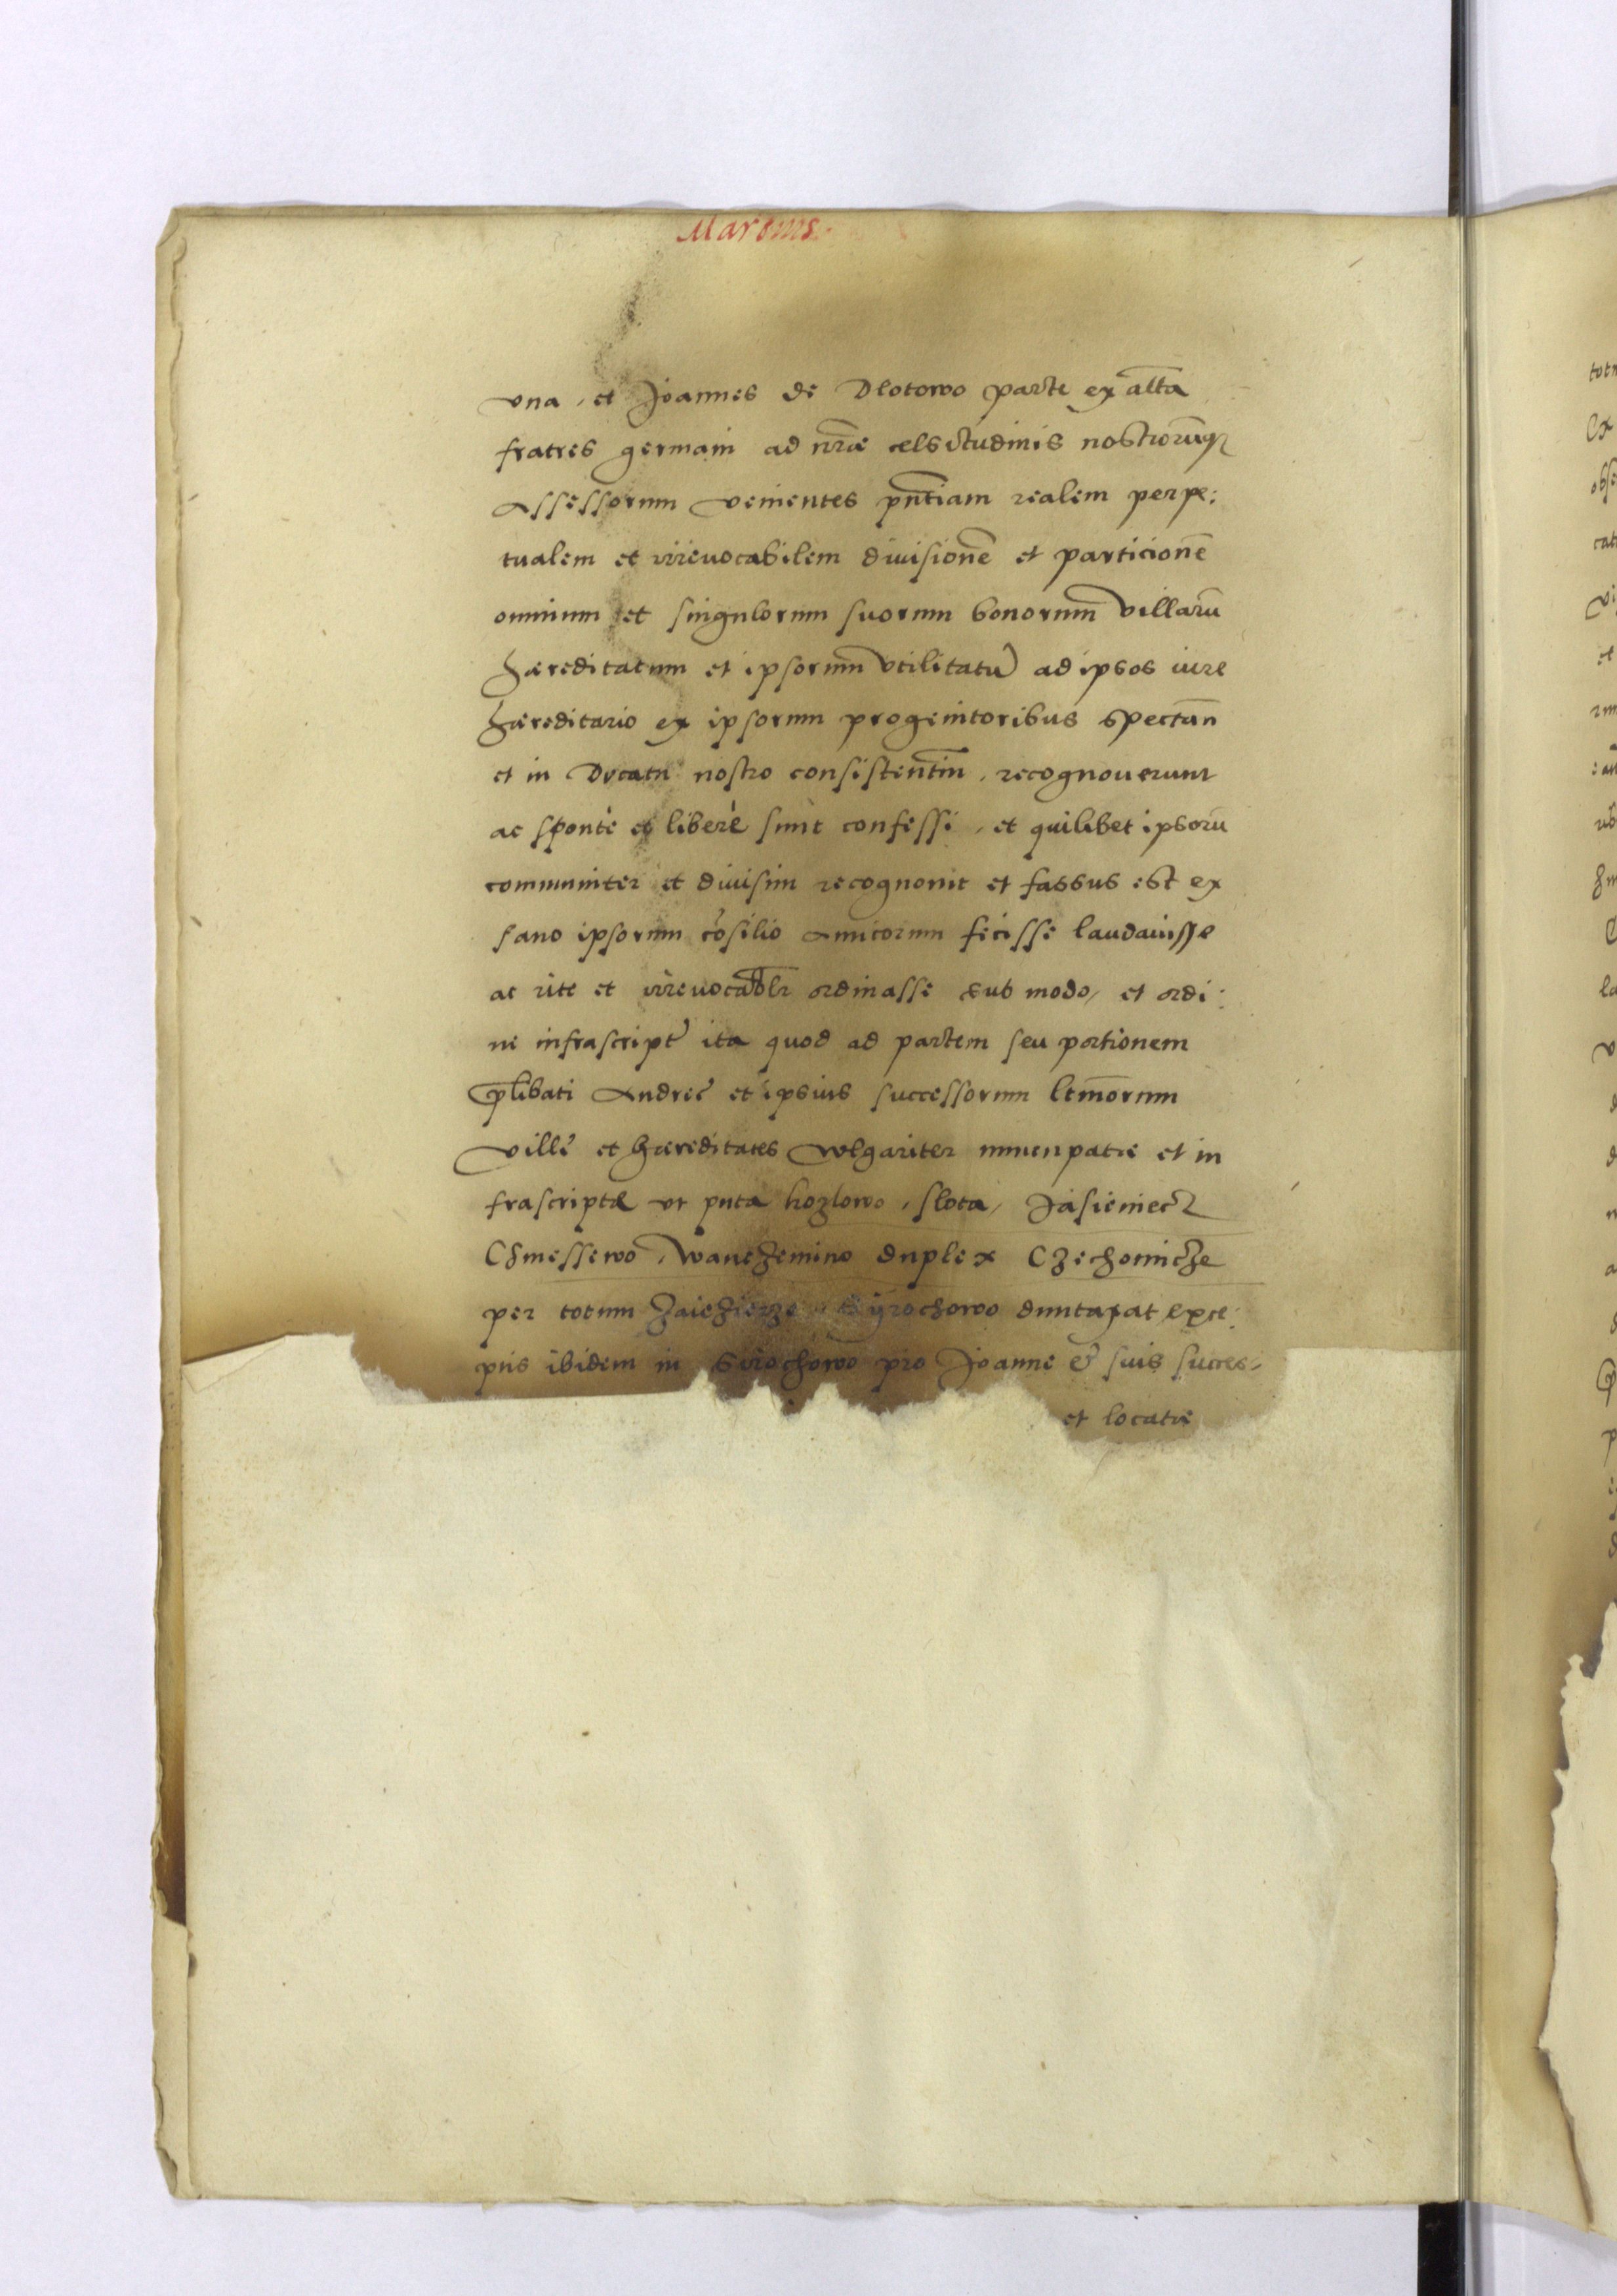 una, et Joannes de Dlotowo parte ex altā
fratres germani ad nr̄ae celsitudinis nostrorūq̃
Assessorum venientes pn̄tiam realem perpe:
tualem et irreuocabilem diuisionē et particionē
omnium et singulorum suorum bonorum villarū
haereditatum et ipsorum vtilitatū ad ipsos iure
haereditario ex ipsorum progenitoribus spectan̄
et in Ducatu nostro consisten̄tiu, recognouerunt
ac spontè et liberè sunt confessi, et quilibet ipsorū
communiter et diuisim recognouit et fassus est ex
sano ipsorum cōsilio amicorum fecisse laudauisse
ac rite et irreuocab̄lr ordinasse sub modo, et ordi:
ne infrascript̃ ita quod ad partem seu portionem
p̄libati Andreę et ipsius successorum ltm̄orum
villę et haereditates vulgariter nuncupatae et in
frascriptae ut puta kozlowo, slota, Jasieniecz
Chmessewo, Wanczemino duplex Czechomicze
per totum Syrochowo duntaxat exce:
ptis ibidem in Sirochowo pro Joanne et suis succes-
et locatae